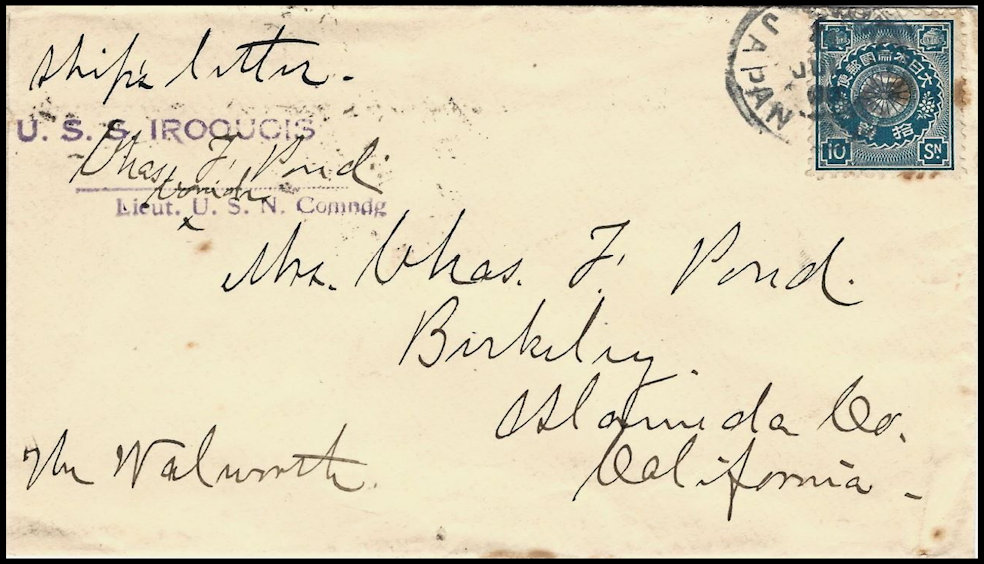 Ship's letter.
U. S. S. IROQUOIS
Chas. F. Pond
Lieut. U. S. N. Comndg
Mrs. Chas. F. Pond.
Berkeley
Alameda Co.
California
The Walworth.
JAPAN
大日本帝國郵便
拾銭
10 Sn